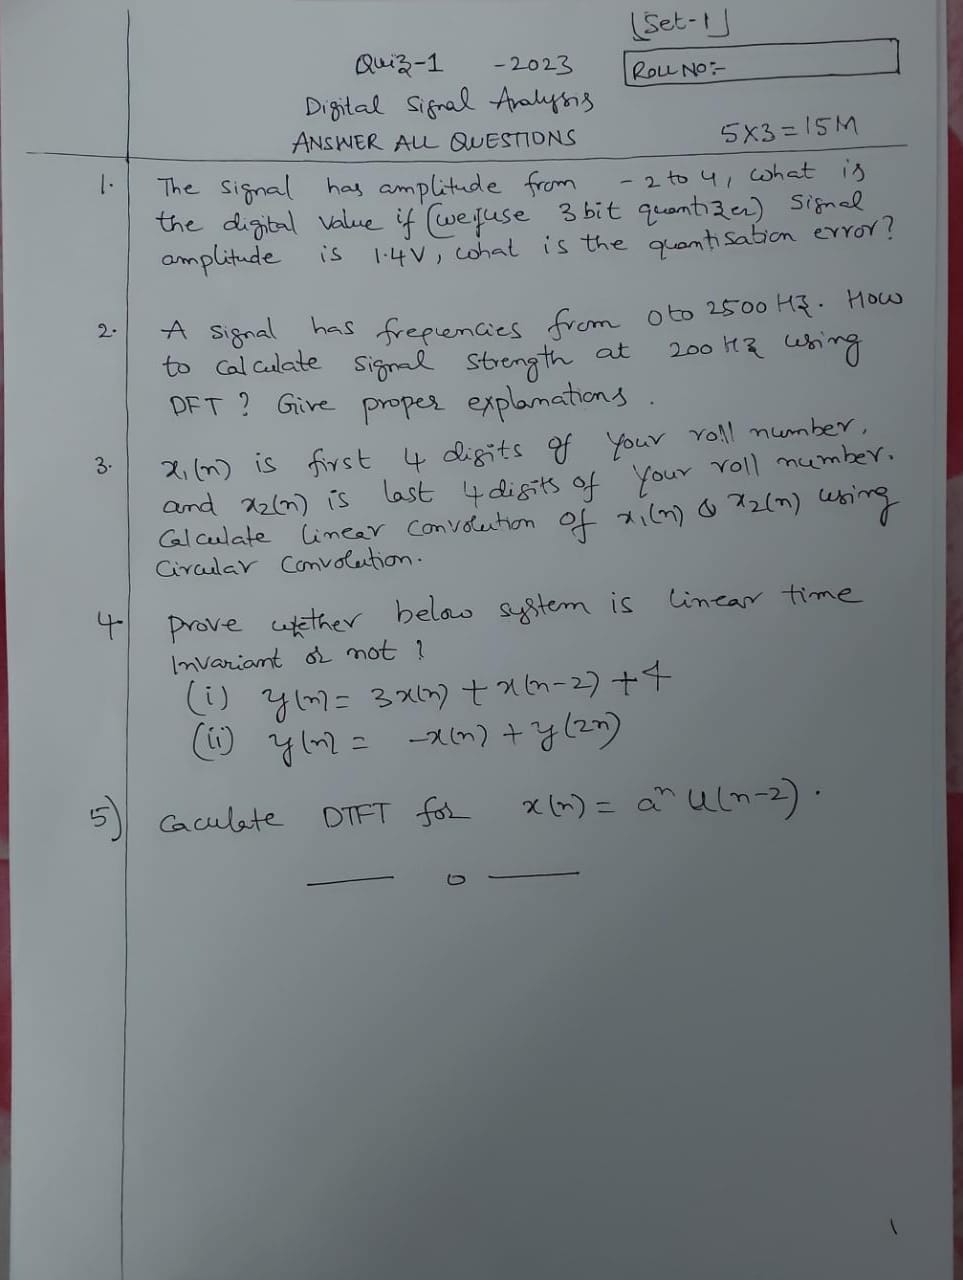 [Set-1]
Quiz-1 -2023
ROLL NO:-
Digital Signal Analysis
ANSWER ALL QUESTIONS
5X3=15M
1. The signal has amplitude from -2 to 4, what is
the digital value if (we use 3 bit quantizer) signal
amplitude is 1.4V, what is the quantisation error?
2. A signal has frequencies from 0 to 2500 Hz. How
to calculate signal strength at 200 Hz using
DFT? Give proper explanations.
3. x₁(n) is first 4 digits of your roll number,
and x₂(n) is last 4 digits of your roll number.
Calculate linear convolution of x₁(n) & x₂(n) using
Circular Convolution.
4. prove whether below system is linear time
Invariant or not?
(i) y(n) = 3x(n) + x(n-2) + 4
(ii) y(n) = -x(n) + y(2n)
5) Caculate DTFT for x(n) = aⁿ u(n-2).
— 0 —
1